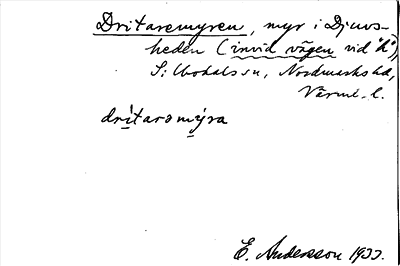 Dritaremyren, myr i Djuvs-
heden (invid vägen vid "h"),
S: Ubohals sn, Nordmarks hd,
Värml. l.
dritaromýra
E. Andersson 1933.